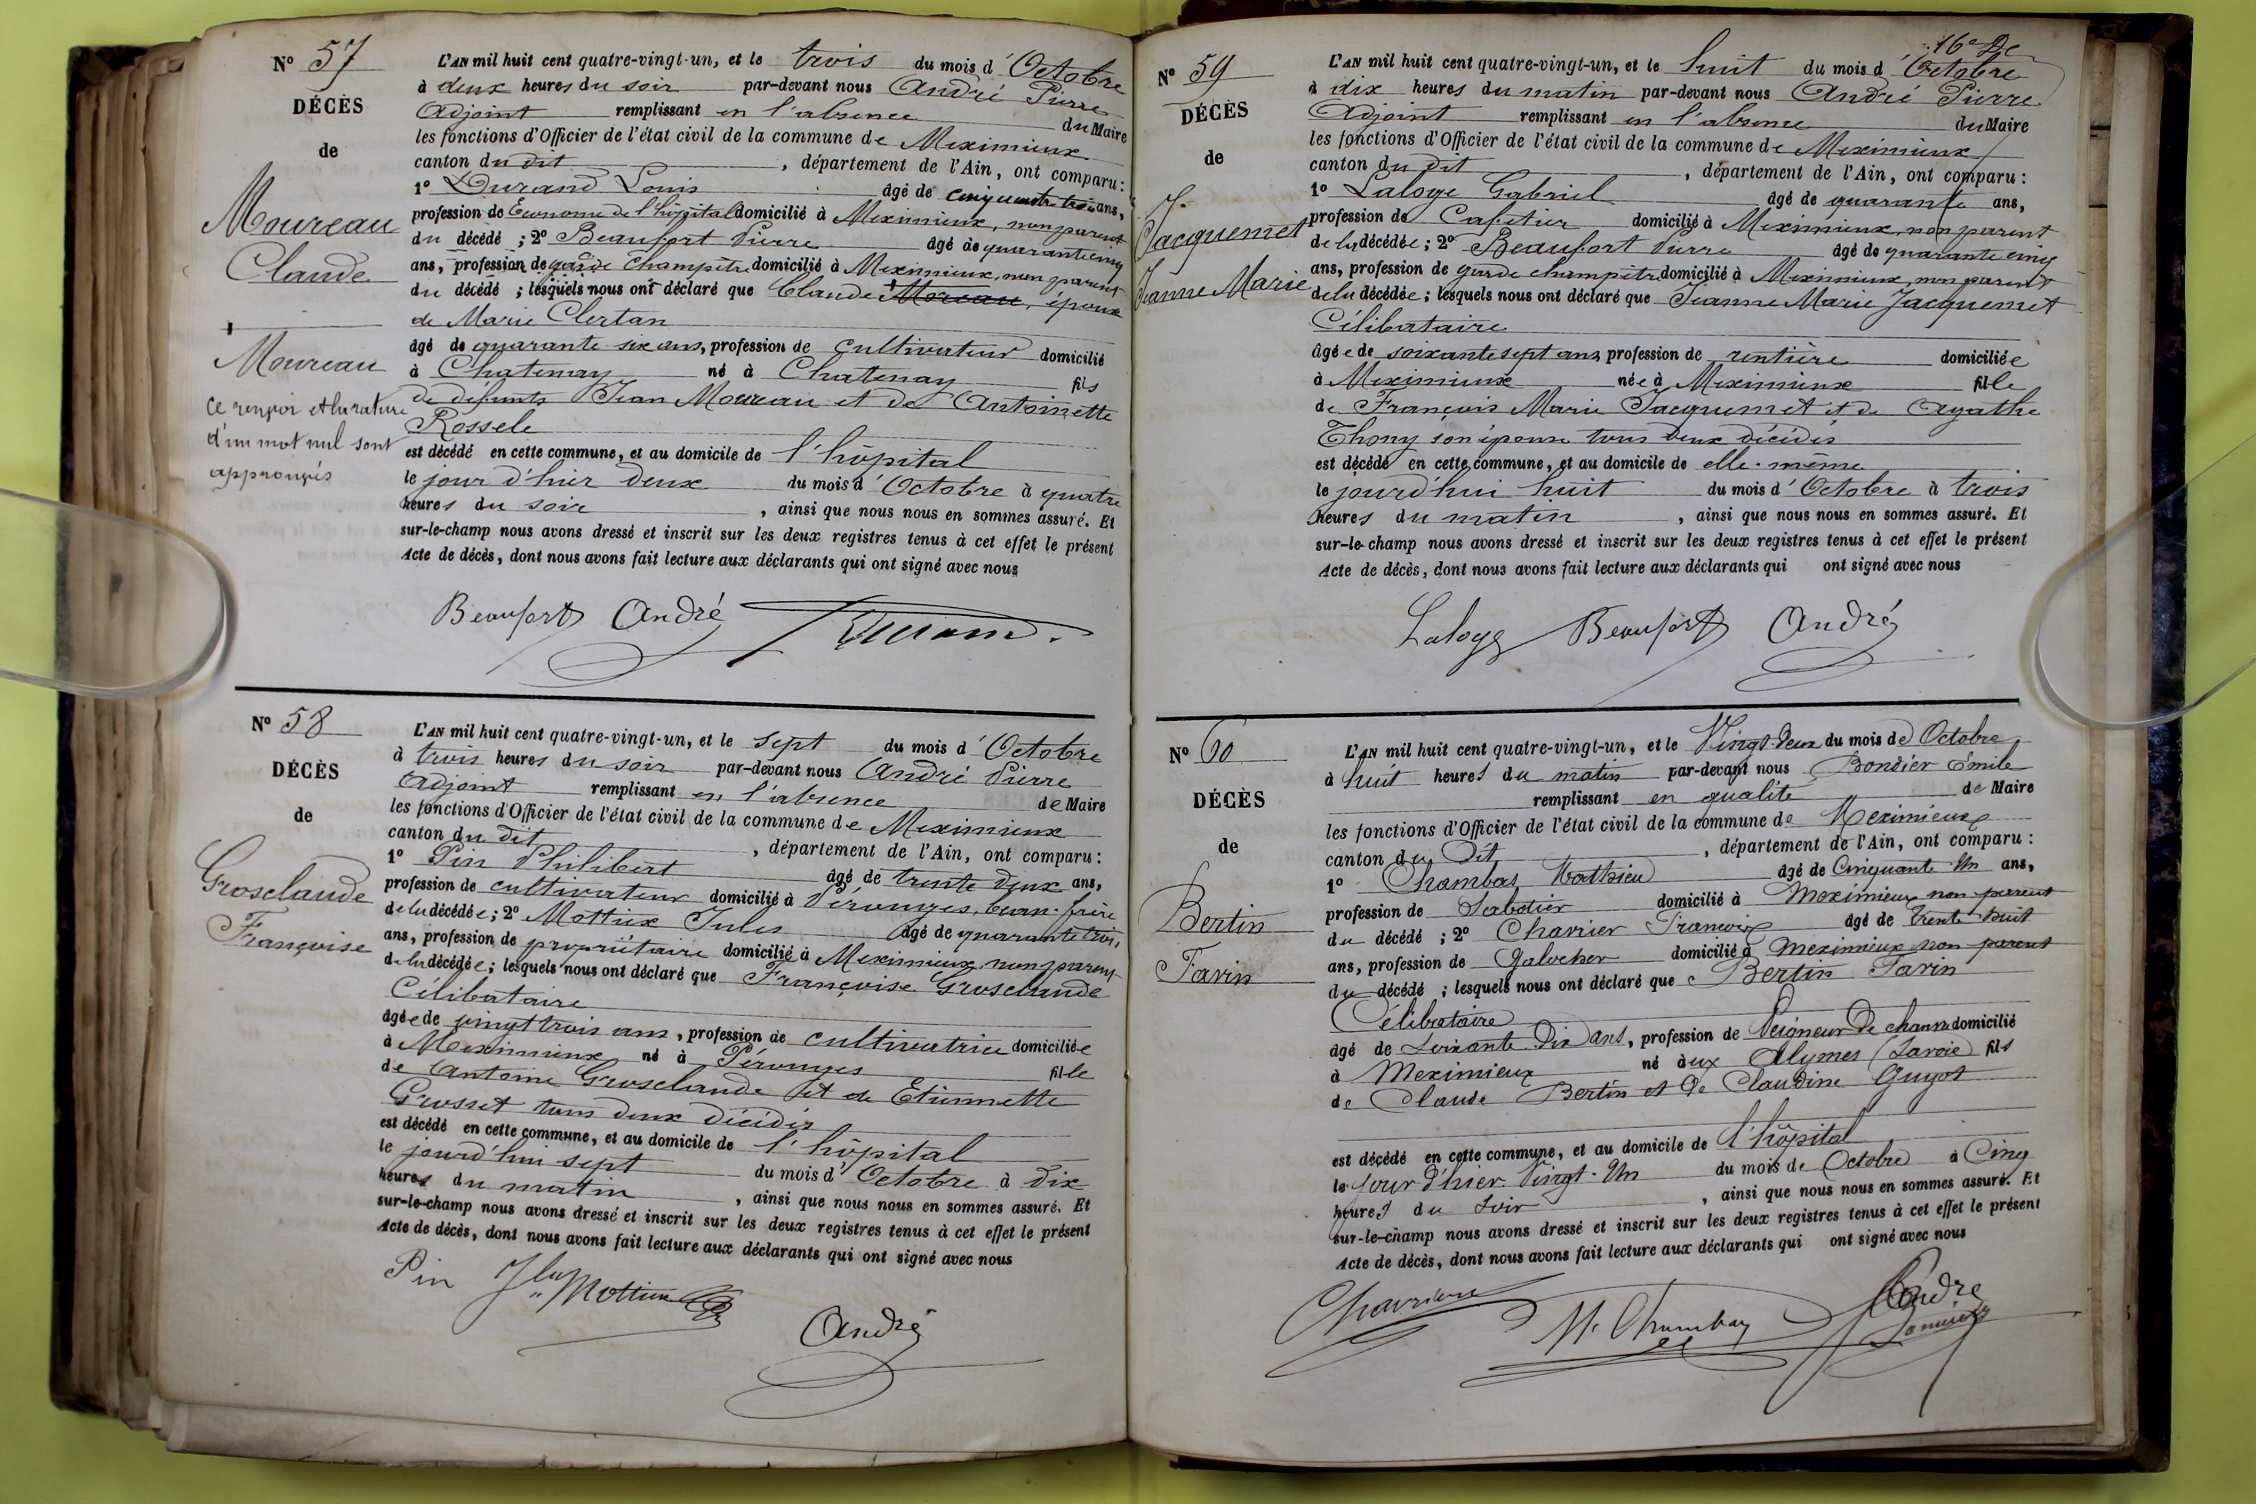 Nº 57
DÉCÈS
de
Moureau
Claude
Moureau
Ce renvoi et la rature
d'un mot nul sont
approuvés
L'AN mil huit cent quatre-vingt-un, et le trois du mois d'Octobre
à deux heures du soir par-devant nous André Pierre
Adjoint remplissant en l'absence du Maire
les fonctions d'Officier de l'état civil de la commune de Meximieux
canton du dit, département de l'Ain, ont comparu :
1º Durand Louis âgé de cinquante trois ans,
profession de Econome de l'hôpital domicilié à Meximieux, non parent
du décédé ; 2º Beaufort Pierre âgé de quarante cinq
ans, profession de garde champêtre domicilié à Meximieux, non parent
du décédé ; lesquels nous ont déclaré que Claude Moreau, époux
de Marie Clertan
âgé de quarante six ans, profession de cultivateur domicilié
à Chatenay né à Chatenay fils
de défunts Jean Moureau et de Antoinette
Rossele
est décédé en cette commune, et au domicile de l'hôpital
le jour d'hier deux du mois d'Octobre à quatre
heures du soir, ainsi que nous nous en sommes assuré. Et
sur-le-champ nous avons dressé et inscrit sur les deux registres tenus à cet effet le présent
Acte de décès, dont nous avons fait lecture aux déclarants qui ont signé avec nous
Beaufort André Durand
Nº 58
DÉCÈS
de
Grosclaude
Françoise
L'AN mil huit cent quatre-vingt-un, et le sept du mois d'Octobre
à trois heures du soir par-devant nous André Pierre
Adjoint remplissant en l'absence de Maire
les fonctions d'Officier de l'état civil de la commune de Meximieux
canton du dit, département de l'Ain, ont comparu :
1º Pin Philibert âgé de trente deux ans,
profession de cultivateur domicilié à Pérouges, beau-frère
de la décédée ; 2º Mottiex Jules âgé de quarante trois
ans, profession de propriétaire domicilié à Meximieux, non parent
de la décédée ; lesquels nous ont déclaré que Françoise Grosclaude
Célibataire
âgée de vingt trois ans, profession de cultivatrice domiciliée
à Meximieux né à Pérouges fille
de Antoine Grosclaude et de Etiennette
Grosset tous deux décédés
est décédé en cette commune, et au domicile de l'hôpital
le jourd'hui sept du mois d'Octobre à dix
heures du matin, ainsi que nous nous en sommes assuré. Et
sur-le-champ nous avons dressé et inscrit sur les deux registres tenus à cet effet le présent
Acte de décès, dont nous avons fait lecture aux déclarants qui ont signé avec nous
Pin
André
16e
Nº 59
DÉCÈS
de
Jacquemet
Jeanne Marie
L'AN mil huit cent quatre-vingt-un, et le huit du mois d'Octobre
à dix heures du matin par-devant nous André Pierre
Adjoint remplissant en l'absence du Maire
les fonctions d'Officier de l'état civil de la commune de Meximieux
canton du dit, département de l'Ain, ont comparu :
1º Laloge Gabriel âgé de quarante ans,
profession de Cafetier domicilié à Meximieux, non parent
de la décédée ; 2º Beaufort Pierre âgé de quarante cinq
ans, profession de garde champêtre domicilié à Meximieux, non parent
de la décédée ; lesquels nous ont déclaré que Jeanne Marie Jacquemet
Célibataire
âgée de soixante sept ans profession de rentière domiciliée
à Meximieux née à Meximieux fille
de François Marie Jacquemet et de Agathe
Thony son épouse tous deux décédés
est décédé en cette commune, et au domicile de elle-même
le jourd'hui huit du mois d'Octobre à trois
heures du matin, ainsi que nous nous en sommes assuré. Et
sur-le-champ nous avons dressé et inscrit sur les deux registres tenus à cet effet le présent
Acte de décès, dont nous avons fait lecture aux déclarants qui ont signé avec nous
Laloge Beaufort André
Nº 60
DÉCÈS
de
Bertin
Favin
L'AN mil huit cent quatre-vingt-un, et le Vingt-deux du mois de Octobre
à huit heures du matin par-devant nous Bondier Emile
remplissant en qualité de Maire
les fonctions d'Officier de l'état civil de la commune de Meximieux
canton du Dit, département de l'Ain, ont comparu :
1º Chambas Mathieu âgé de Cinquante Un ans,
profession de Sabotier domicilié à Meximieux non parent
du décédé ; 2º Charrier François âgé de trente huit
ans, profession de Galocher domicilié à Meximieux non parent
du décédé ; lesquels nous ont déclaré que Bertin Favin
Célibataire
âgé de Soixante Dix ans, profession de Peigneur de chanvre domicilié
à Meximieux né aux Alymes (Savoie) fils
de Claude Bertin et de Claudine Guyot
est décédé en cette commune, et au domicile de l'hôpital
le jour d'hier Vingt-Un du mois de Octobre à Cinq
heures du soir, ainsi que nous nous en sommes assuré. Et
sur-le-champ nous avons dressé et inscrit sur les deux registres tenus à cet effet le présent
Acte de décès, dont nous avons fait lecture aux déclarants qui ont signé avec nous
M. Chambas